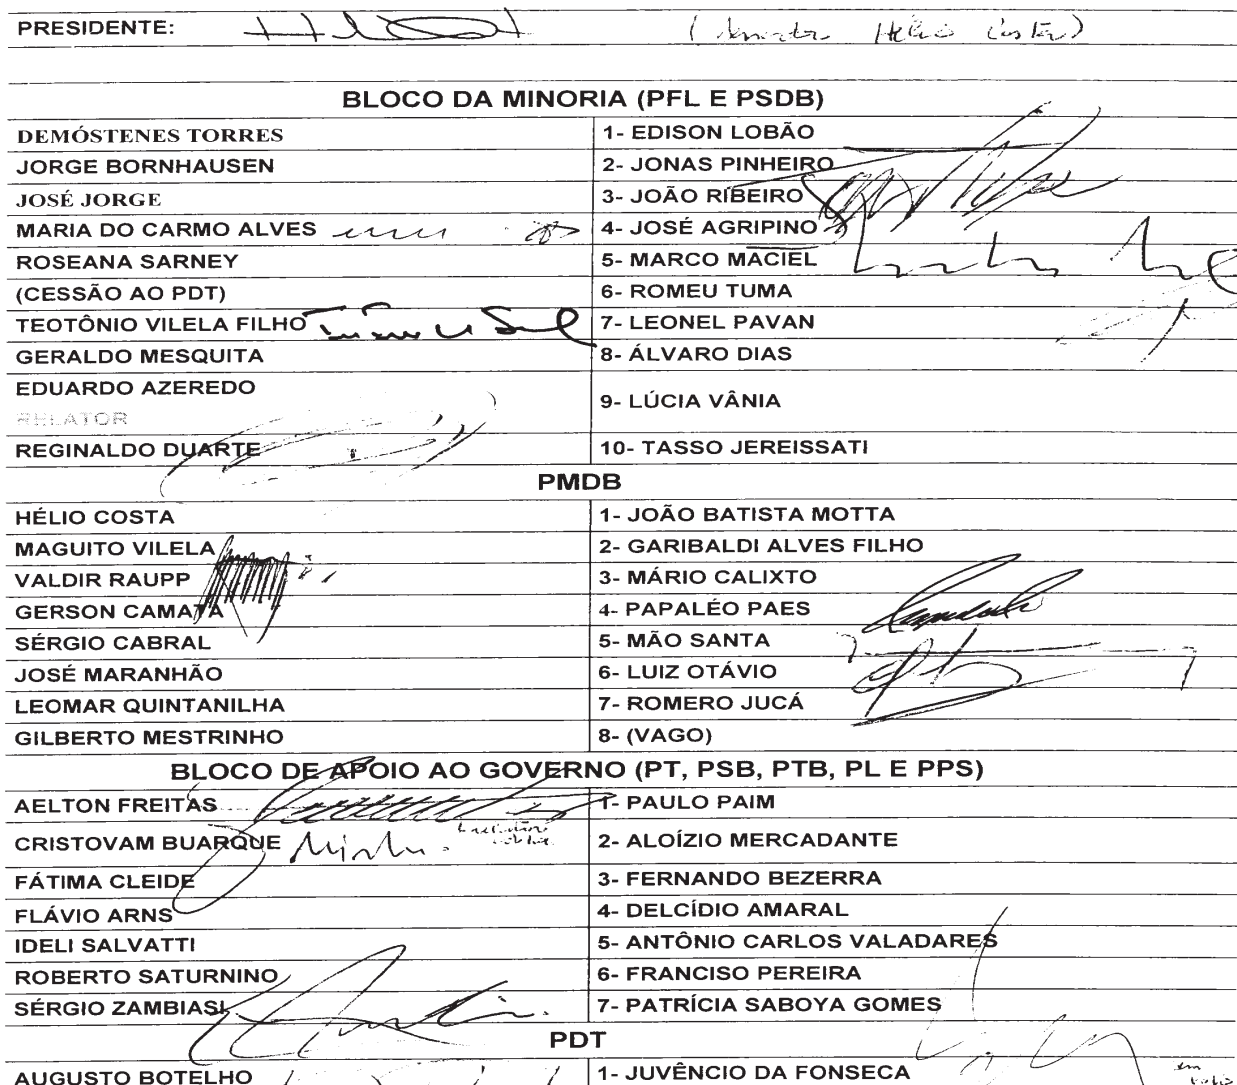 PRESIDENTE: (Senador Hélio Costa)
BLOCO DA MINORIA (PFL E PSDB)
DEMÓSTENES TORRES 1- EDISON LOBÃO
JORGE BORNHAUSEN 2- JONAS PINHEIRO
JOSÉ JORGE 3- JOÃO RIBEIRO
MARIA DO CARMO ALVES 4- JOSÉ AGRIPINO
ROSEANA SARNEY 5- MARCO MACIEL
(CESSÃO AO PDT) 6- ROMEU TUMA
TEOTÔNIO VILELA FILHO 7- LEONEL PAVAN
GERALDO MESQUITA 8- ÁLVARO DIAS
EDUARDO AZEREDO
RELATOR 9- LÚCIA VÂNIA
REGINALDO DUARTE 10- TASSO JEREISSATI
PMDB
HÉLIO COSTA 1- JOÃO BATISTA MOTTA
MAGUITO VILELA 2- GARIBALDI ALVES FILHO
VALDIR RAUPP 3- MÁRIO CALIXTO
GERSON CAMATA 4- PAPALÉO PAES
SÉRGIO CABRAL 5- MÃO SANTA
JOSÉ MARANHÃO 6- LUIZ OTÁVIO
LEOMAR QUINTANILHA 7- ROMERO JUCÁ
GILBERTO MESTRINHO 8- (VAGO)
BLOCO DE APOIO AO GOVERNO (PT, PSB, PTB, PL E PPS)
AELTON FREITAS 1- PAULO PAIM
CRISTOVAM BUARQUE 2- ALOÍZIO MERCADANTE
FÁTIMA CLEIDE 3- FERNANDO BEZERRA
FLÁVIO ARNS 4- DELCÍDIO AMARAL
IDELI SALVATTI 5- ANTÔNIO CARLOS VALADARES
ROBERTO SATURNINO 6- FRANCISO PEREIRA
SÉRGIO ZAMBIASI 7- PATRÍCIA SABOYA GOMES
PDT
AUGUSTO BOTELHO 1- JUVÊNCIO DA FONSECA